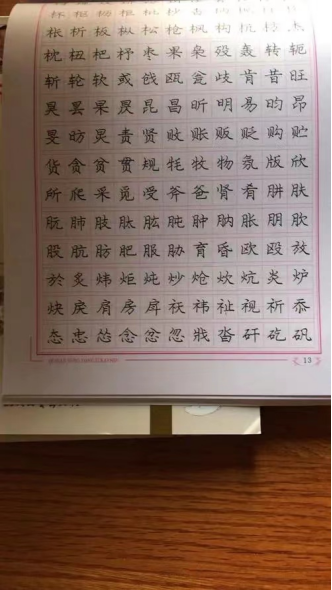 枨 析 板 枞 松 枪 枫 构 杭 杰
枕 杻 杷 杼 枣 果 枭 殁 轰 转 轭
斩 轮 软 或 戗 瓯 瓮 歧 肯 昔 旺
昊 昙 杲 昃 昆 昌 昕 明 易 昀 昂
旻 昉 炅 责 贤 败 账 贩 贬 购 贮
货 贪 贫 贯 规 牦 牧 物 氛 版 欣
所 爬 采 觅 受 斧 爸 肴 肼 肤
朊 肺 肢 肽 肱 肫 肿 胀 朋
股 肮 肪 肥 服 胁 育 昏 欧 殴 放
於 炙 炜 炬 炖 炒 炝 炊 炕 炎 炉
炔 戾 肩 房 戽 祆 祎 祉 视 祈 忝
态 忠 怂 念 忿 忽 戕 沓 矸 矻 矾
13